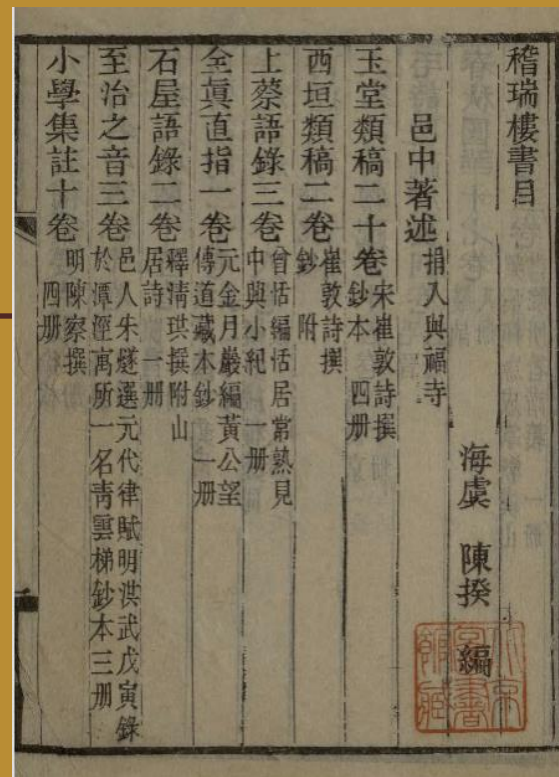 稽瑞樓書目
海虞 陳揆 編
邑中著述 捐入興福寺
玉堂類稿二十卷 宋崔敦詩撰
鈔本 四册
西垣類稿二卷 崔敦詩撰
鈔 附
上蔡語錄三卷 曾恬編恬居常熟見
中興小紀 一册
全眞直指一卷 元金月巖編黃公望
傳道藏本鈔 一册
石屋語錄二卷 釋清珙撰附山
居詩 一册
至治之音三卷 邑人朱燧選元代律賦明洪武戊寅錄
於潭涇寓所一名靑雲梯鈔本三册
小學集註十卷 明陳察撰
四册
北京
圖書
館藏